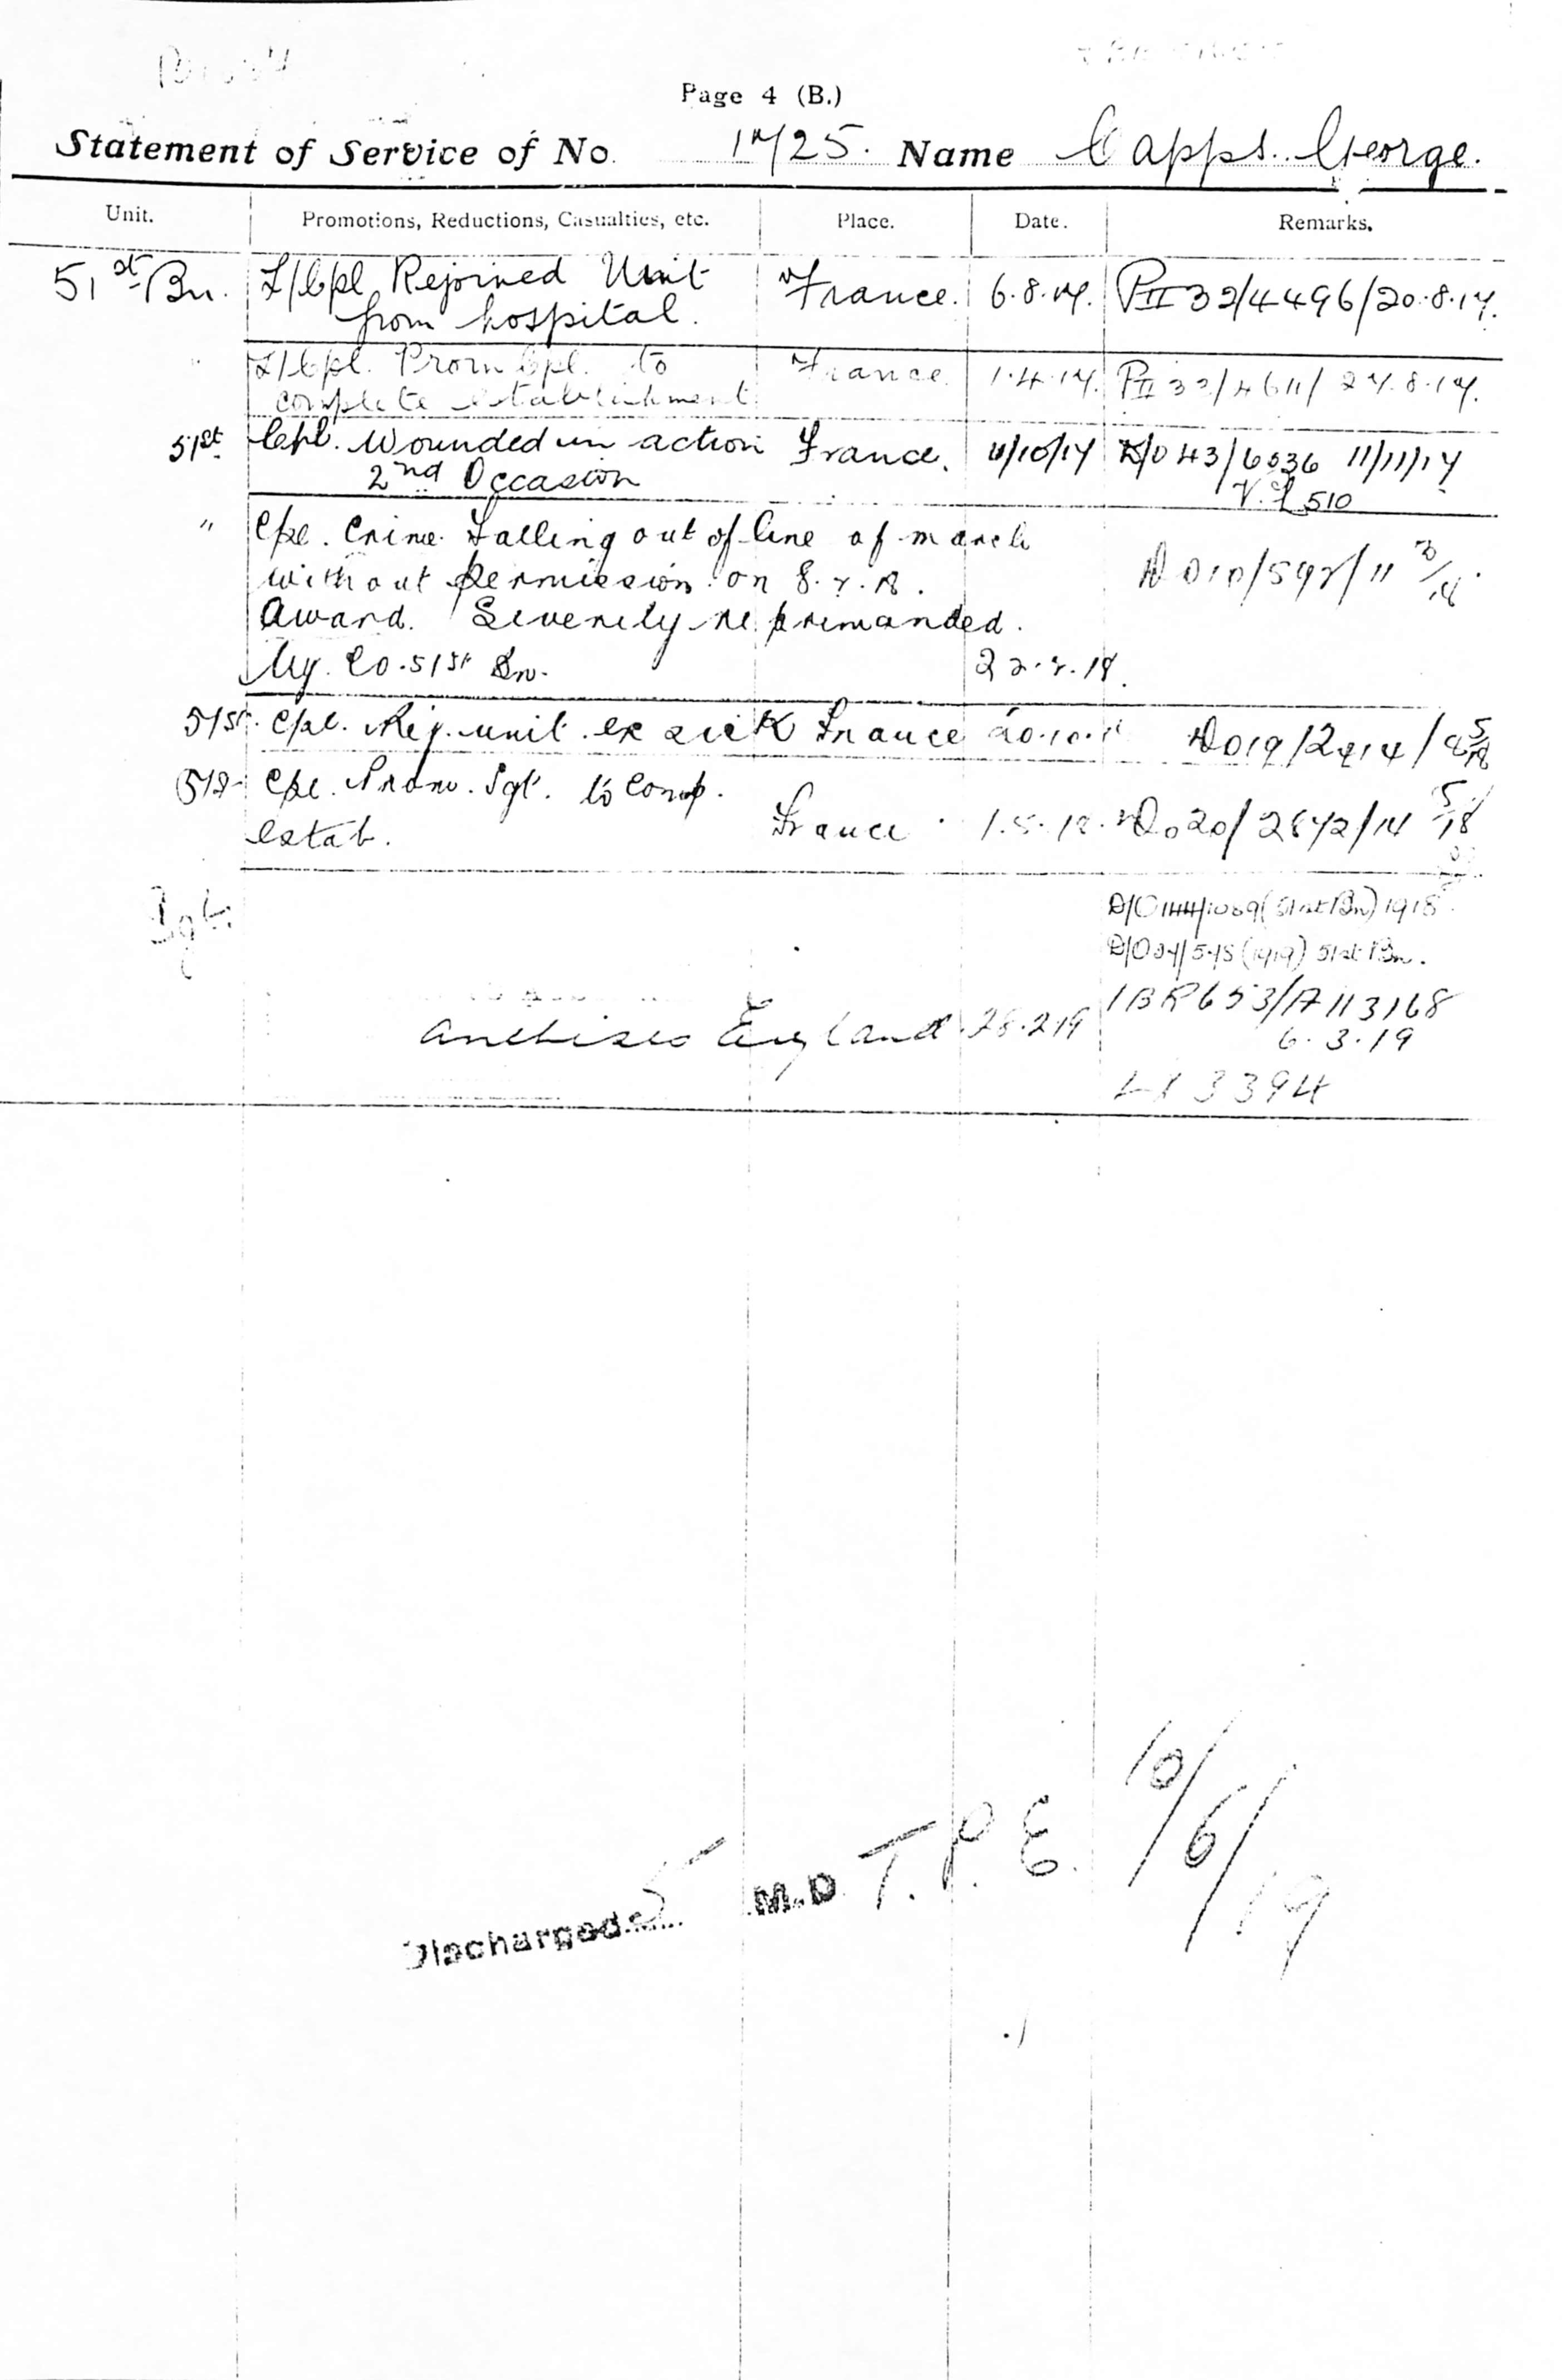 Page 4 (B.)
Statement of Service of No. 1725. Name Capps. George.
Unit. Promotions, Reductions, Casualties, etc. Place. Date. Remarks.
51st Bn. L/Cpl Rejoined Unit France. 6.8.17. PII 32/4496/20.8.17.
from hospital.
L/Cpl. Prom Cpl. to France 1.4.17. PII 33/4611/27.8.17.
complete establishment
51st Cpl. Wounded in action France. 11/10/17 D/O 43/6036 11/11/17
2nd Occasion V.L 510
" Cpl. Crime. Falling out of line of march
without permission on 8.2.18. DO10/592/11 3/18
Award. Severely reprimanded.
by. CO. 51st Bn. 22.2.18.
51st. Cpl. Rej. unit ex sick France 20.10. DO19/2714/ 5/18
Cpl. Prom. Sgt. to Comp.
estab. France 1.5.18. DO20/2872/14 5/18
Sgt. (51st Bn) 1918
(1919) 51st Bn.
Anchises England 28.2.19 IBR653/A113168
6.3.19
3394
Discharged 5 M.D. T.P.E. 10/6/19